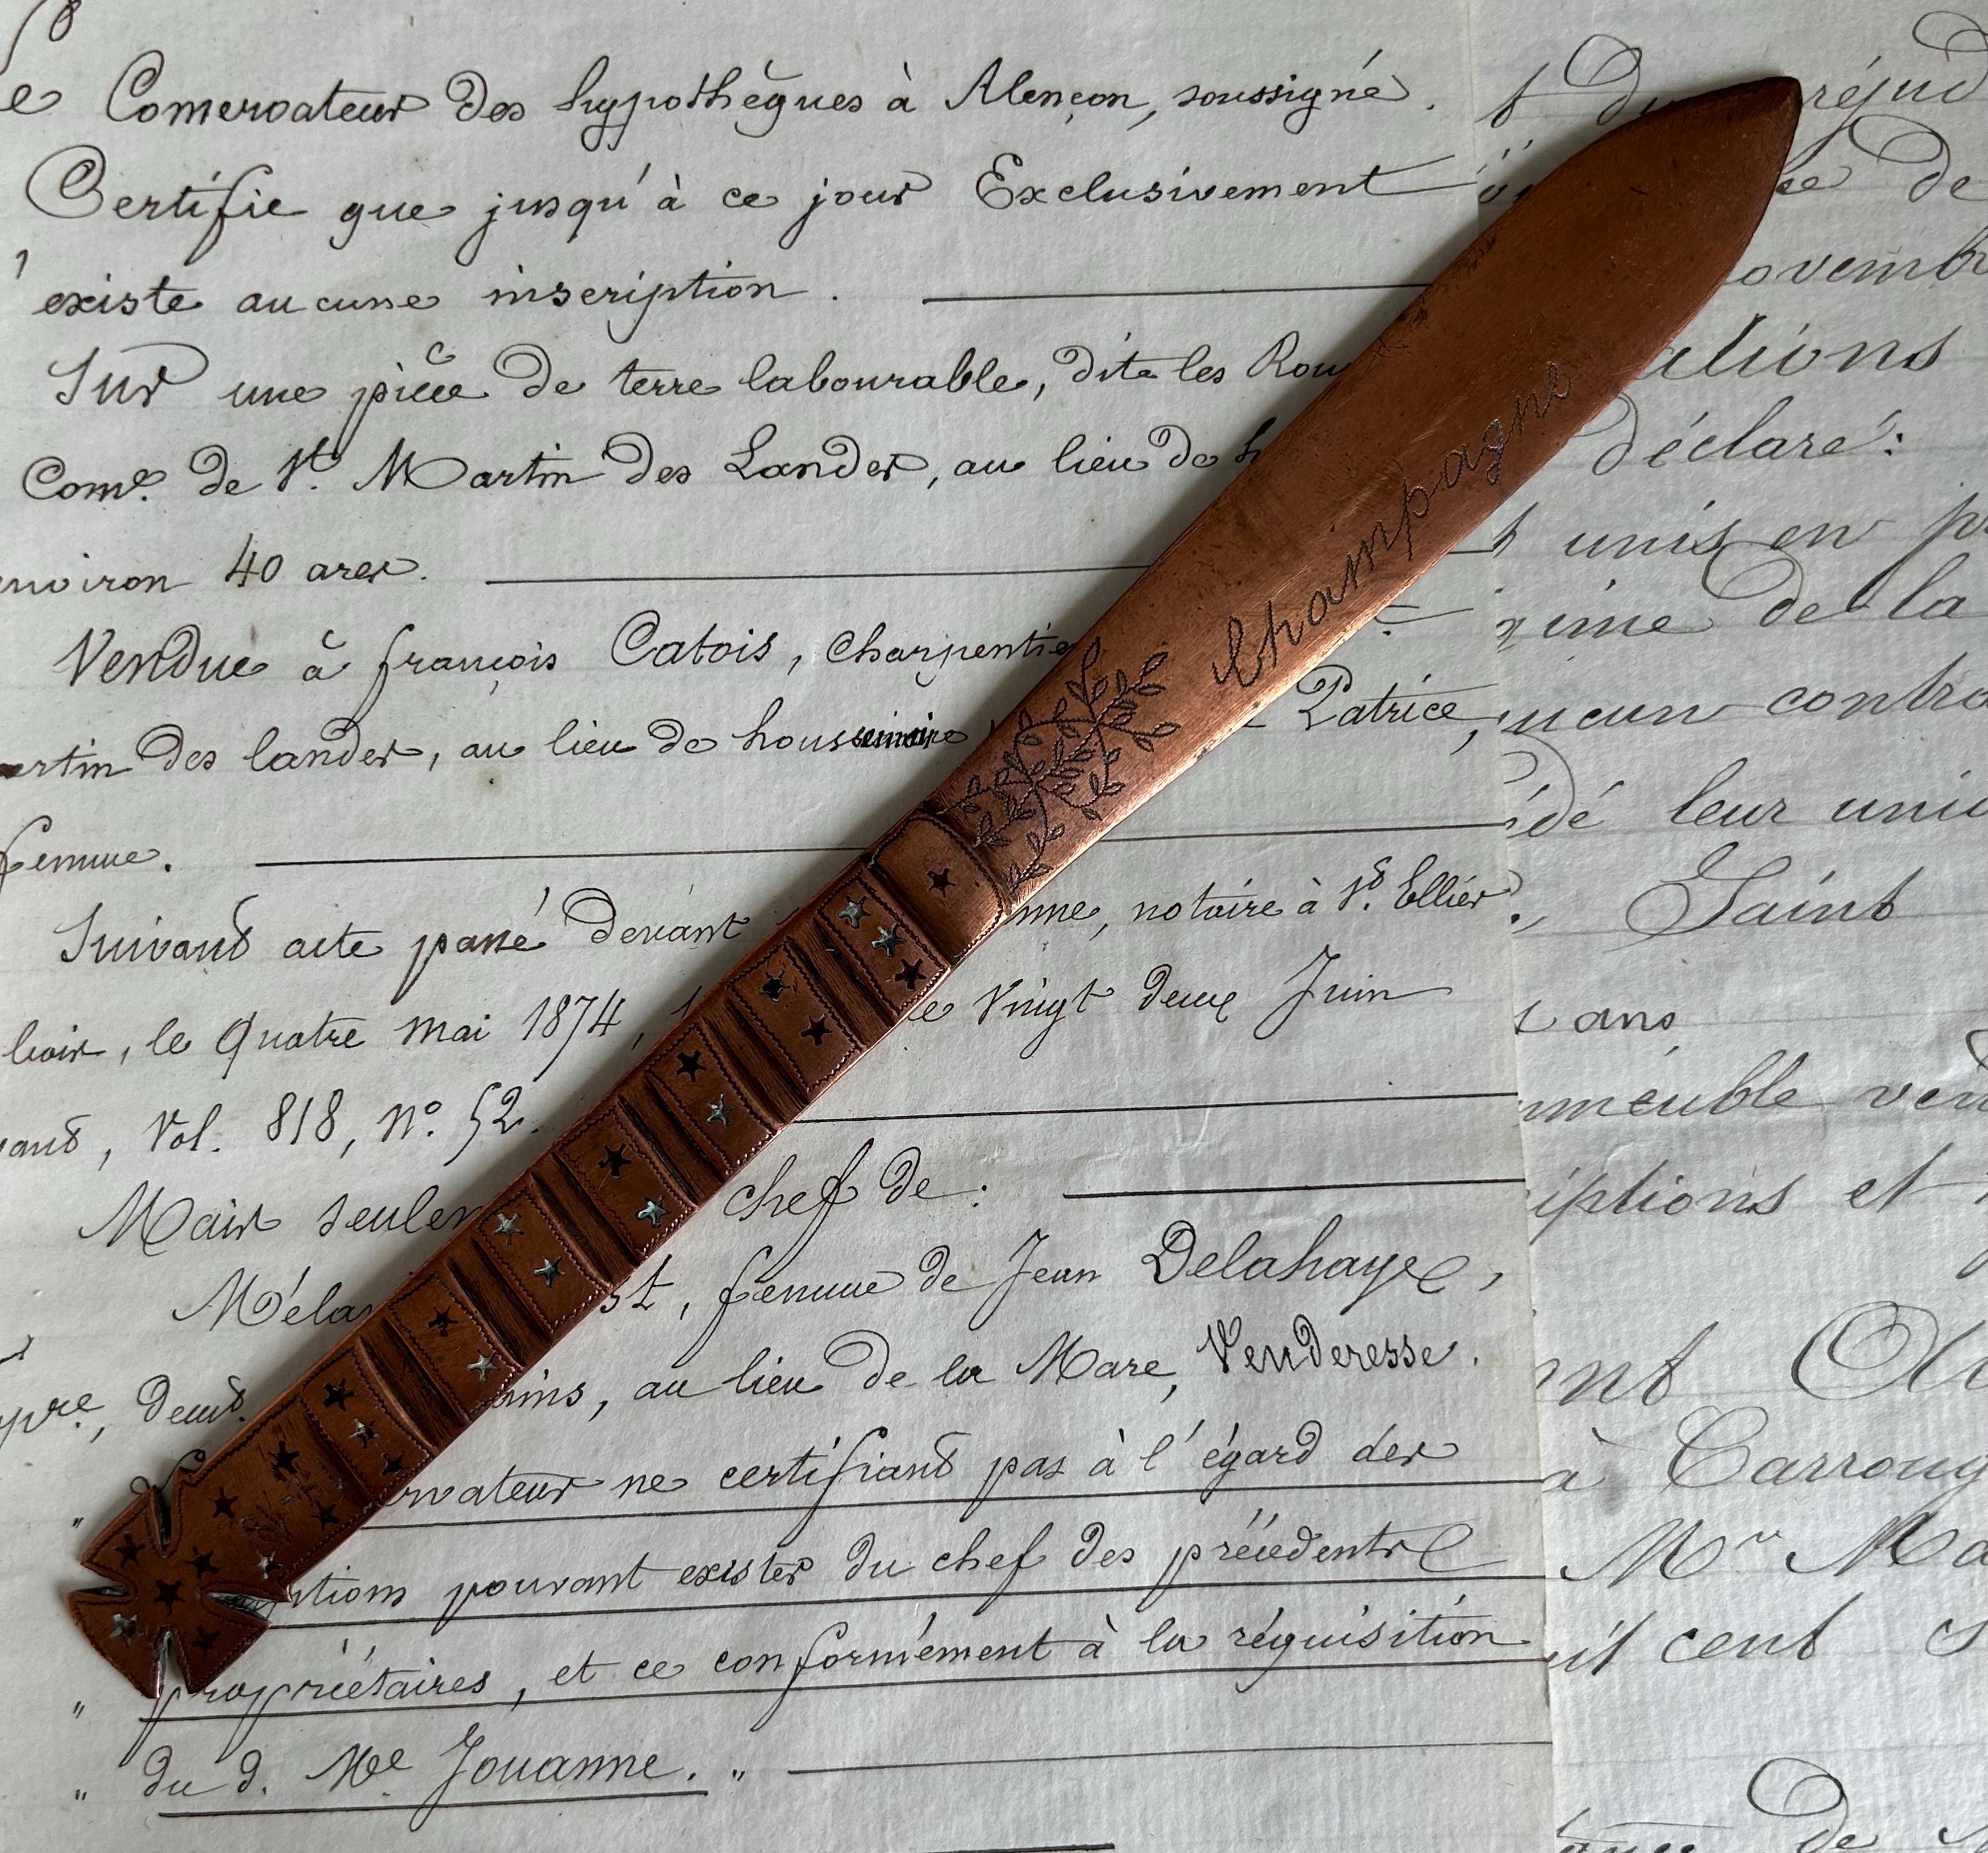 Conservateur des hypothèques à Alençon, soussigné.
Certifie que jusqu'à ce jour Exclusivement
existe aucune inscription.
Sur une pièce de terre labourable, dite les Rou
Come. de St. Martin des Landes, au lieu de h
environ 40 ares.
Vendue à françois Catois, charpentie
artin des landes, au lieu de Patrice,
femme.
Suivant acte passé devant nne, notaire à St. Ellier
le quatre mai 1874, vingt deux Juin
Vol. 818, no. 52.
Mais seulem chef de :
Méla st, femme de Jean Delahaye,
au lieu de la Mare, Venderesse.
rvateur ne certifiant pas à l'égard des
ptions pouvant exister du chef des précédents
" propriétaires, et ce conformément à la réquisition
" du d. Me Jouanne. "
Champagne
réjud
de
novemb
ations
déclaré :
unis en p
xime de la
ucun contra
édé leur uni
Saint
ans
mmeuble vend
iptions et
à Carroug
Mr Ma
it cent
de